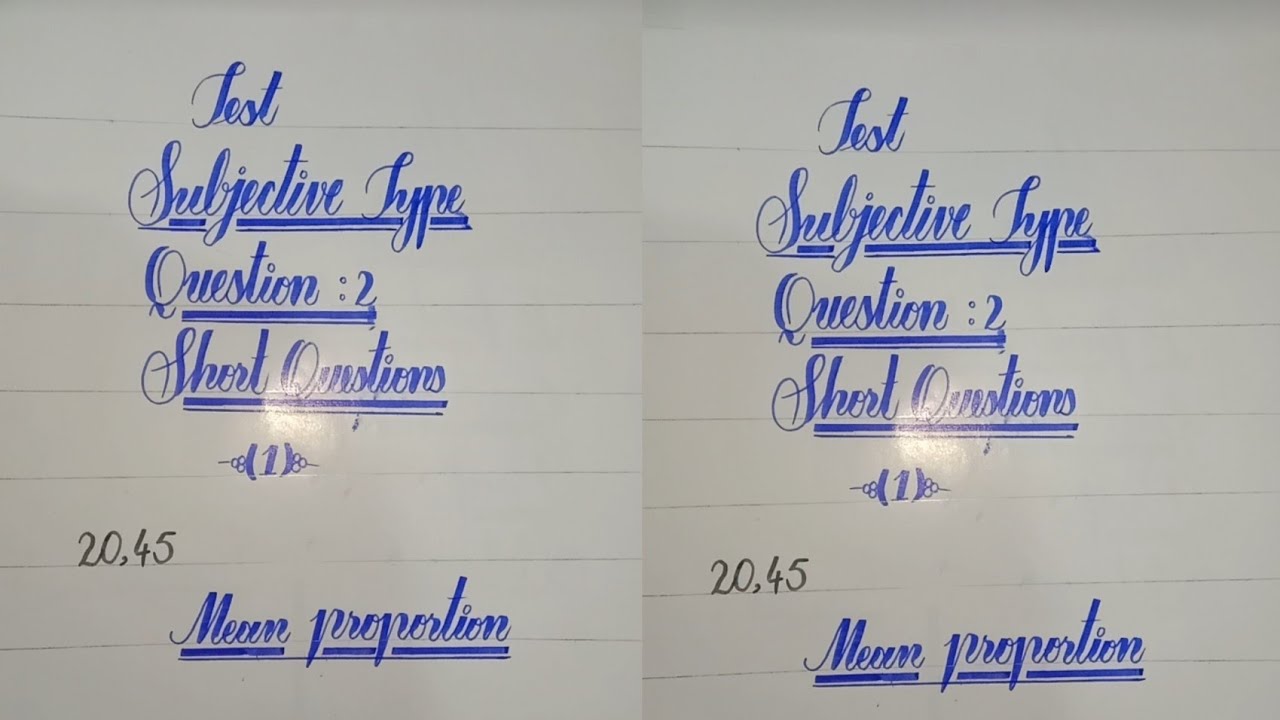 Test
Subjective Type
Question : 2
Short Questions
(1)
20,45
Mean proportion
Test
Subjective Type
Question : 2
Short Questions
(1)
20,45
Mean proportion